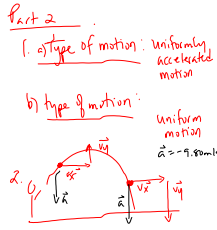 Part 2
1. a) type of motion: uniformly
accelerated
motion
b) type of motion:
uniform
motion
a = -9.80m
2.
vy
vx
a
vx
vy
a